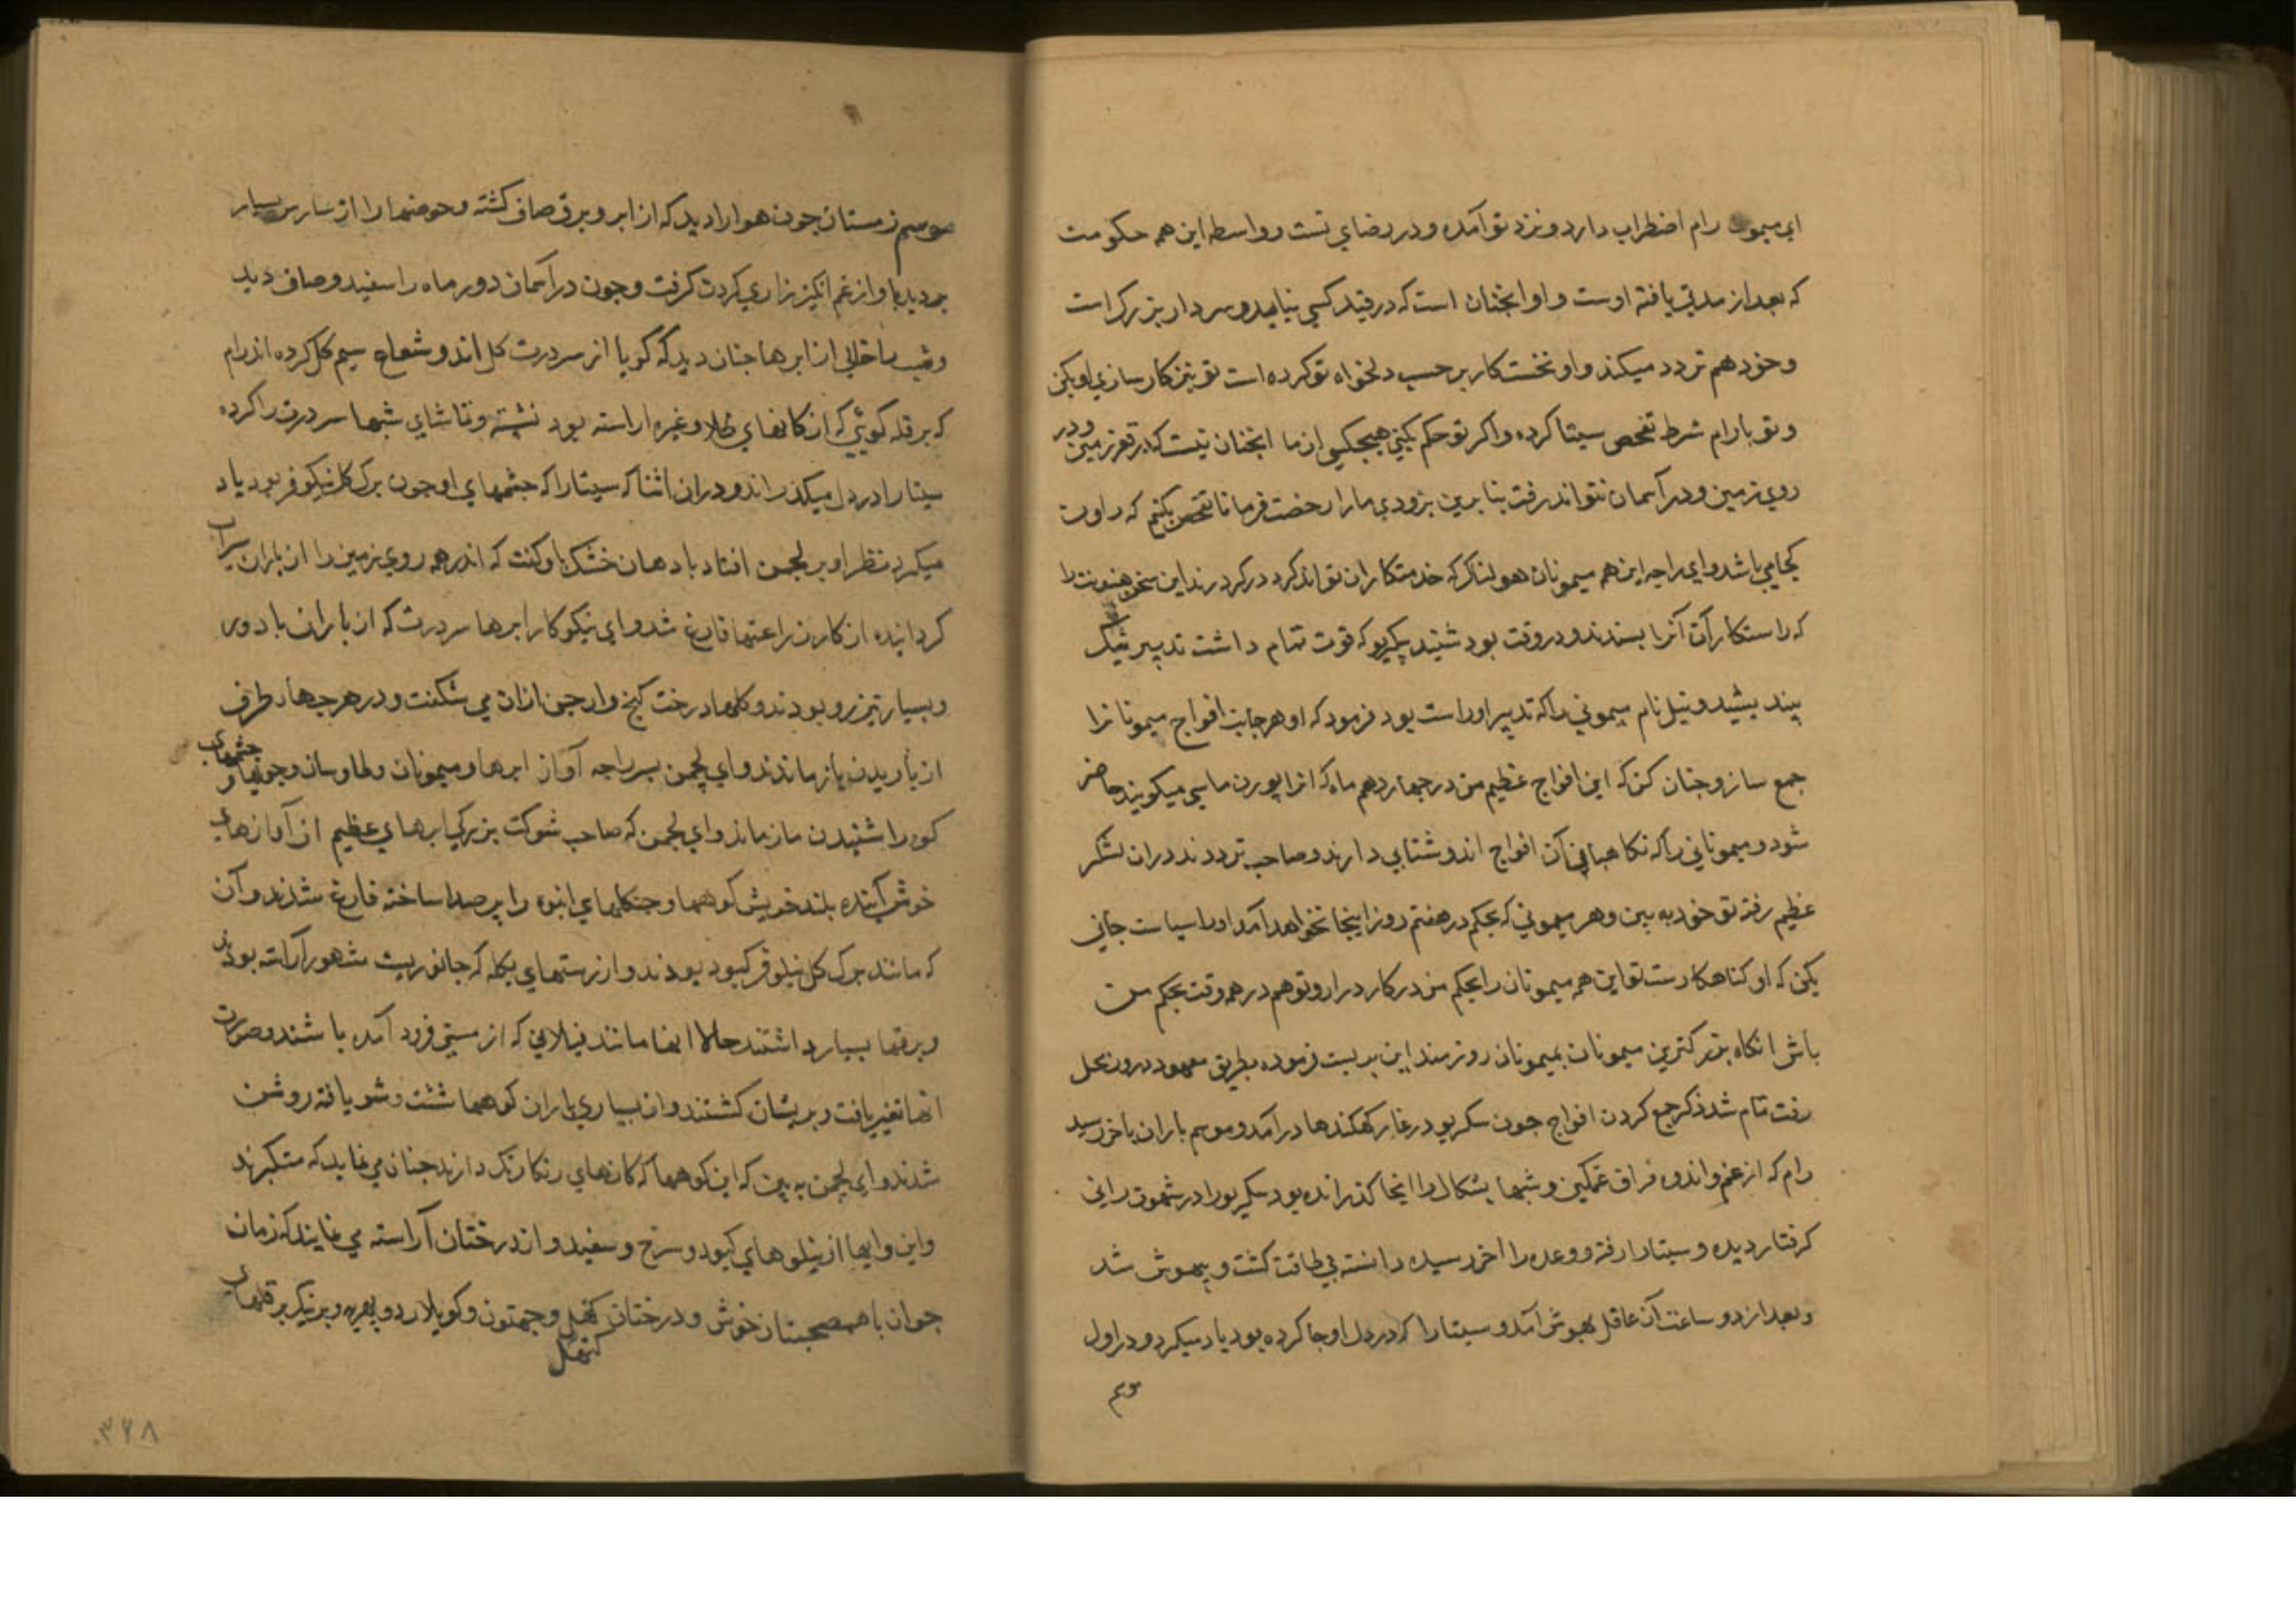 ای میمون رام اضطراب دارد و نزد تو آمده و در رضای تست و واسطه این هم حکومت
که بعد از مدتی یافته اوست و او انچنان است که در قید کسی بیاید و سردار بزرک است
و خود هم تردد میکند و او نخست کار بر حسب دلخواه تو کرده است تو نیز کار سازی او بکن
و تو با رام شرط تفحص سیتا کرده و اکر تو حکم بکنی هیچکس از ما انچنان نیست که در قعر زمین و در
روی زمین و در آسمان نتواند رفت بنابرین بزودی ما را رخصت فرما تا تفحص بکنیم که راون
کجا می باشد و ای راجه این هم میمونان هولناک که خدمتکاران تواند کرد در کردرند این سخن هنونت را
که راستکار آن آنرا پسندند و در وقت بود شنید سکریو که قوت تمام داشت تدبیر نیک
بیندیشید و نیل نام میمونی را که تدبیر او راست بود فرمود که او هر جانب افواج میمونانرا
جمع ساز و چنان کن که این افواج عظیم من در چهاردهم ماه که انرا پورن ماسی میکویند حاضر
شود و میمونانی را که نکاهبانی آن افواج اند و شتابی دارند و صاحب ترددند دران لشکر
عظیم رفته تو خود به بین و هر میمونی که بحکم در هفتم روز اینجا نخواهد آمد او را سیاست جانی
بکن که او کناهکارست تو این هم میمونان را بحکم من در کار درار و تو هم در هم وقت بحکم من
باش انکاه بزرکترین میمونان بمیمونان روزمند این بدیست فرموده بطریق معهود درون محل
رفت تمام شد ذکر جمع کردن افواج چون سکریو در غار کهکندها درآمد و موسم باران باخر رسید
رام که از غم و اندوه فراق غمکین و شبها بشکال را اینجا کذرانده بود سکریو را در شهوت رانی
کرفتار دیده و سیتا را رفته و وعده را اخر رسیده دانسته بی طاقت کشت و بیهوش شد
و بعد از دو ساعت آن عاقل بهوش آمد و سیتا را که در دل او جا کرده بود یاد میکرد و در اول
موسم زمستان چون هوا را دید که از ابر و برق صاف کشته و حوضها را از سارس بسیار
پر دید باواز غم انکیز زاری کردن کرفت و چون در آسمان دور ماه را سفید و صاف دید
و شب را خالی از ابرها چنان دید که کویا از سردرت کل اند و شعاع سیم کل کرده اند رام
که بر قله کوئی که از کانهای طلا و غیره اراسته بود نشسته و تماشای شبها سردرت را کرده
سیتا را در دل میکذراند و دران اثنا که سیتا را که چشمهای او چون برک کل نیکوفر بود یاد
میکرد نظر او بر لچمن افتاد با دهان خشک باو کفت که اندر همه روی زمین را از باران سیراب
کردانیده از کار زراعتها فارغ شد و ای نیکوکار ابرها سردرت که از باران با دور
و بسیار تیز رو بودند و کلها درخت کنج و ارجن ازان می شکفت و در هر چهار طرف
از باریدن باز ماندند و ای لچمن پسر راجه آواز ابرها و میمونان و طاوسان و جویها و چشمهای
کوه را شنیدن باز ماند و ای لچمن که صاحب شوکت بزرکی ابرهای عظیم از آوازهای
خوش آینده بلند خویش کوهها و جنکلهای انبوه را پر صدا ساخته فارغ شدند و آن
که مانند برک کل نیلوفر کبود بودند و از رستهای بکله که جانوریست مشهور آراسته بودند
و برقها بسیار داشتند حالا انها مانند فیلانی که از مستی فرود آمده باشند و صورت
انها تغیر یافت و پریشان کشتند و از بسیاری باران کوهها شست و شو یافته روشن
شدند و ای لچمن به بین که این کوهها که کانهای رنکارنک دارند چنان می نماید که متکبرند
و این وایها از نیلوهای کبود و سرخ و سفید و از درختان آراسته می نمایند که زمان
جوان با هم صحبتان خوش و درختان کنهل و جهتون و کوبلار دوپهریه و برنیک بر قلهای
کنهل
۳۶۸